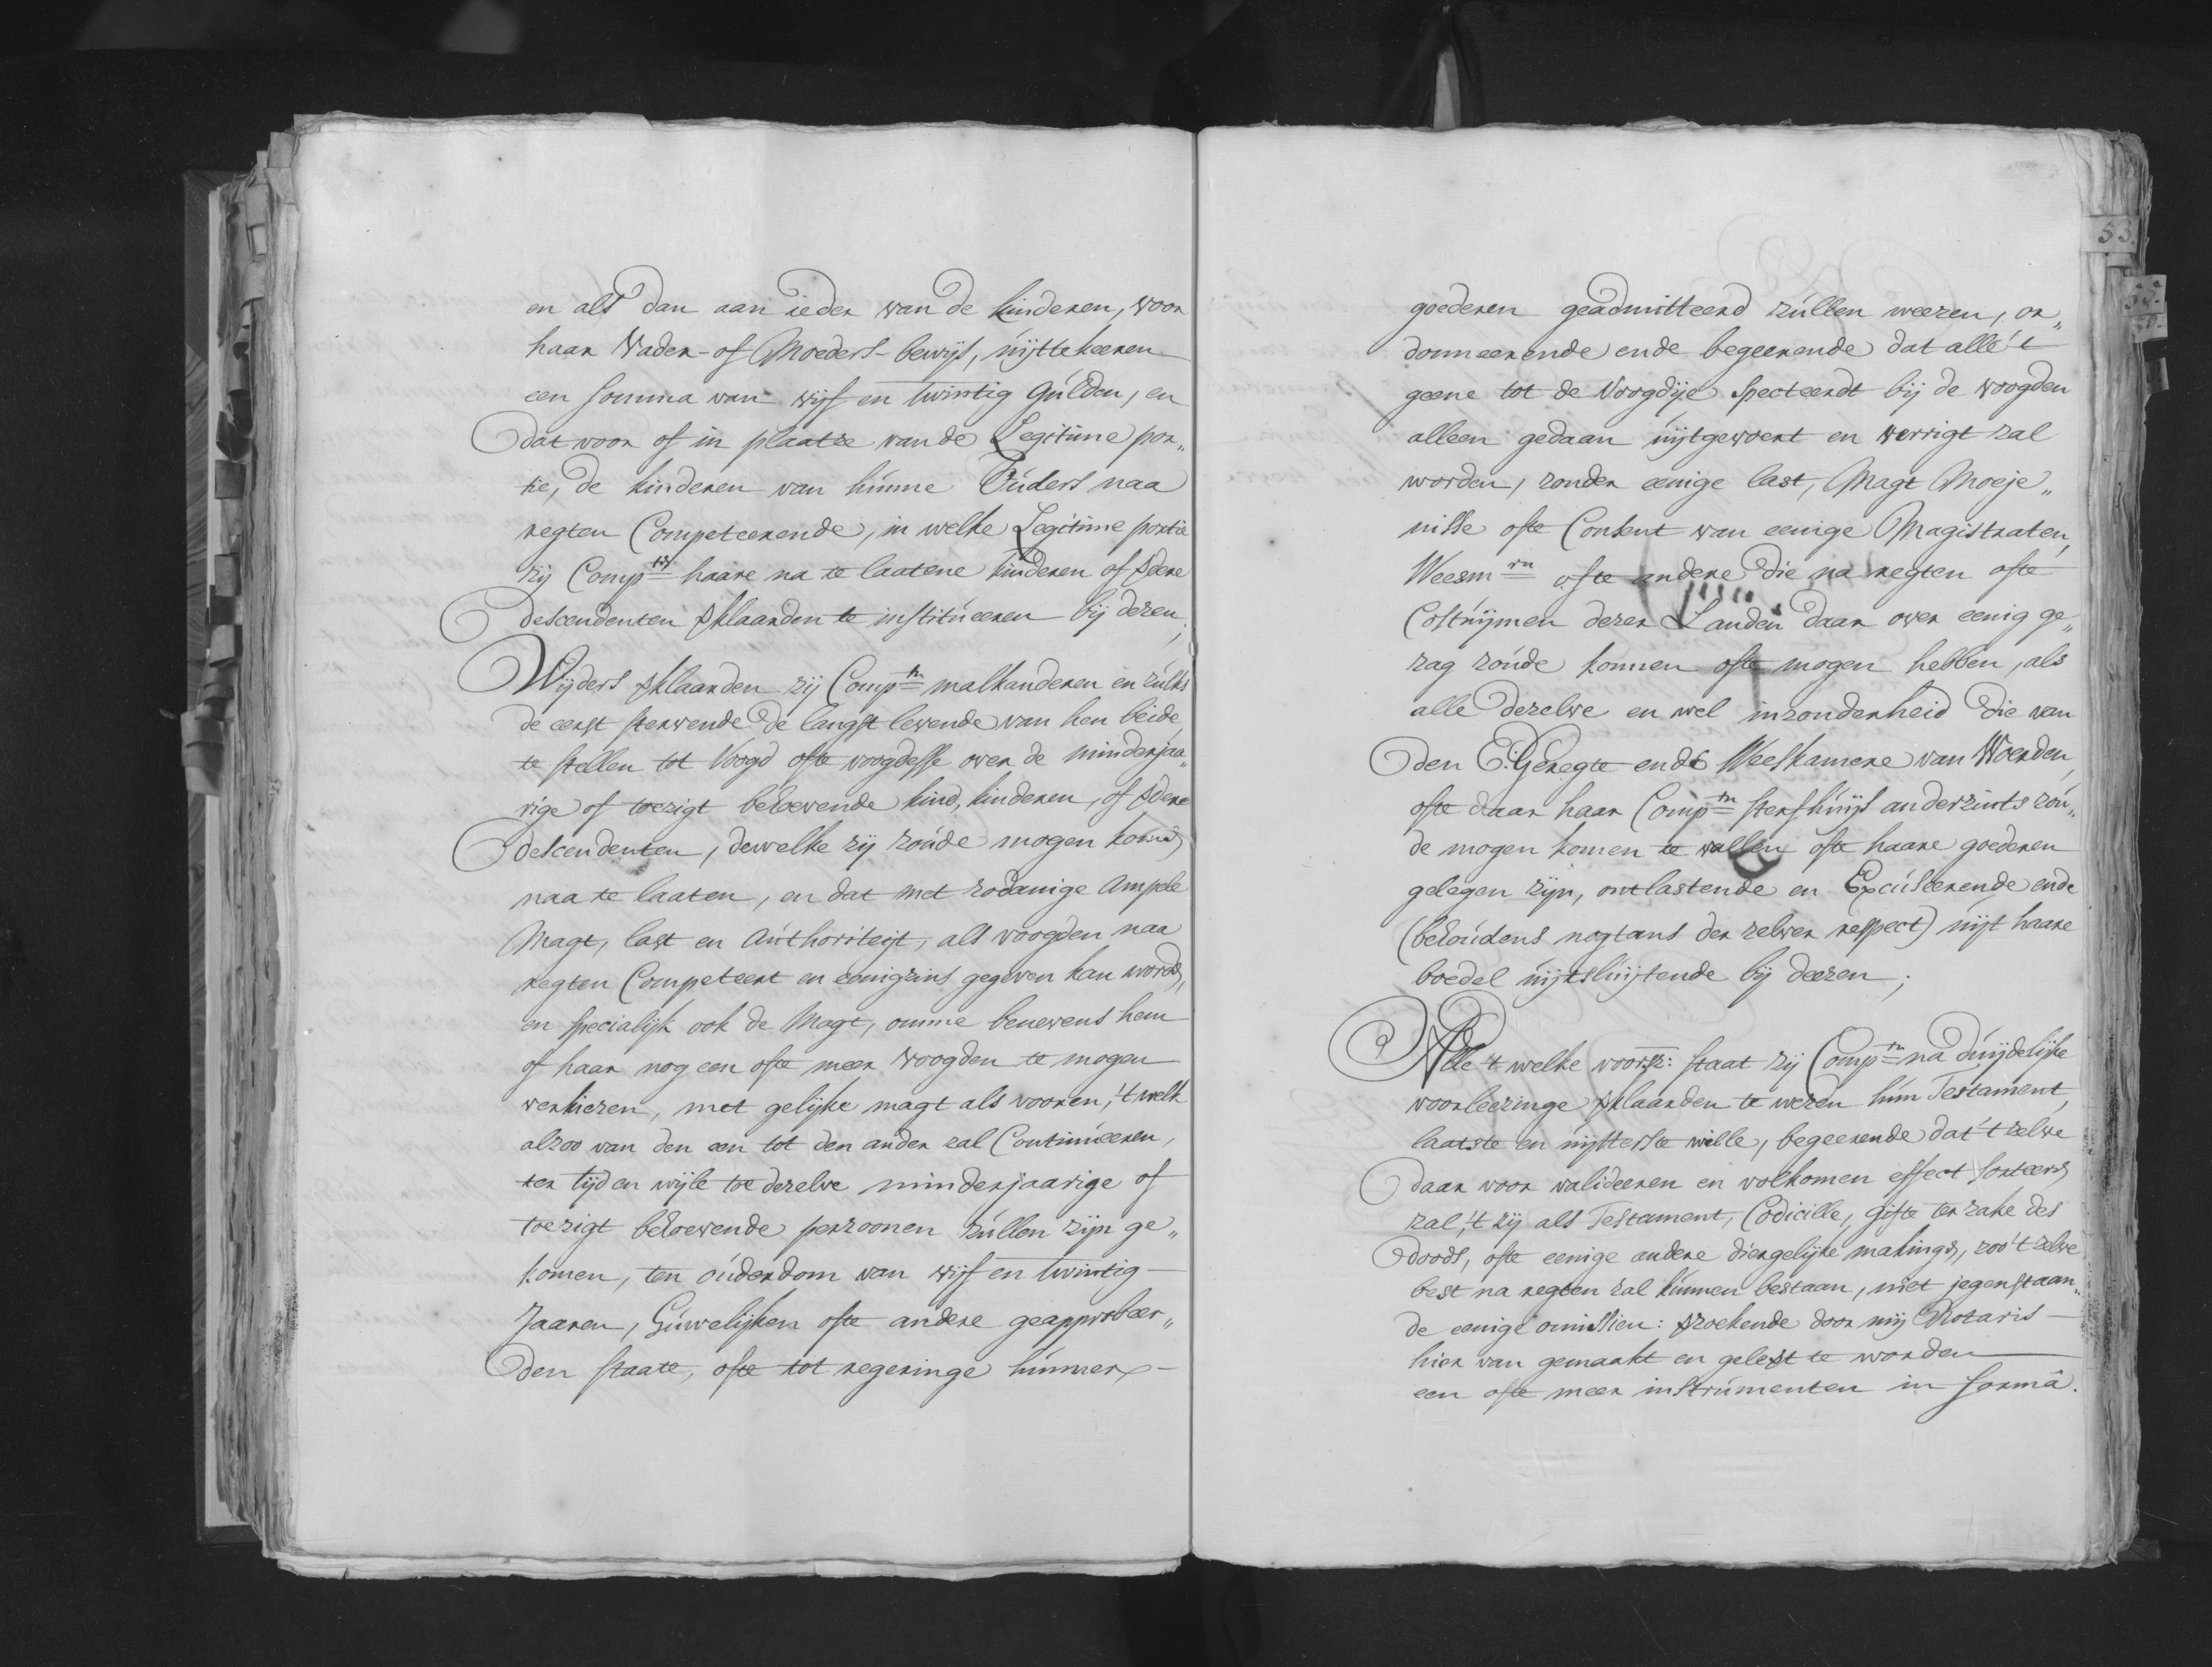 en als dan aan ieder van de kinderen, voor
haar Vader- of Moeders-bewijs, uijttekeeren
een somma van vijf en twintig Gulden, en
dat voor of in plaatze van de Legitime por„
tie, de kinderen van hunne Ouders naa
regten Competeerende, in welke Legitime portie
zij Comptn haare na te laatene kinderen of vdere
descendenten vklaarden te institueeren bij dezen;
Wijders vklaarden zij Comptn malkanderen en zulks
de eerst stervende de langst levende van hen beide,
te stellen tot Voogd ofte voogdesse over de minderjaa„
rige of toezigt behoevende kind, kinderen, of vdere
descendenten, dewelke zij zoude mogen komen
naa te laaten, en dat met zodanige Ampele
Magt, last en Authoriteijt, als voogden naa
regten Competeert en eenigzins gegeven kan worden,
en specialijk ook de Magt, omme benevens hem
of haar nog een ofte meer Voogden te mogen
verkiezen, met gelijke magt als vooren, 't welk
alzoo van den een tot den ander zal Continueeren,
ter tijd en wijle toe dezelve minderjaarige of
toezigt behoevende perzoonen zullen zijn ge„
komen, ten ouderdom van vijf en twintig
Jaaren, Huwelijken ofte andere geapprobeer„
den staate, ofte tot regeringe hunner
53.
goederen geadmitteerd zullen weezen, or„
donneerende ende begeerende dat alle 't
geene tot de Voogdije specteerdt bij de voogden
alleen gedaan uijtgevoert en verrigt zal
worden, zonder eenige last, Magt Moeje„
nisse ofte Consent van eenige Magistraten,
Weesmrn ofte andere die na regten ofte
Costuijmen dezer Landen daar over eenig ge„
zag zoude konnen ofte mogen hebben, als
alle dezelve en wel inzonderheid die van
den E: Geregte ende Weeskamere van Woerden,
ofte daar haar Comptn sterfhuijs anderzints zou„
de mogen komen te vallen ofte haare goederen
gelegen zijn, ontlastende en Excuseerende ende
(behoudens nogtans der zelver respect) uijt haare
boedel uijtsluijtende bij deezen;
Alle 't welke voorsz: staat zij Comptn na duijdelijke
voorleezinge vklaarden te wezen hun Testament,
laatste en uijtterste wille, begeerende dat 't zelve
daar voor valideeren en volkomen effect sorteeren
zal, 't zij als Testament, Codicille, gifte ter zake des
doods, ofte eenige andere diergelijke makinge, zoo 't zelve
best na regten zal kunnen bestaan, niet jegenstaan„
de eenige omissien: vzoekende door mij Notaris
hier van gemaakt en gelevt te worden
een ofte meer instrumenten in formâ.